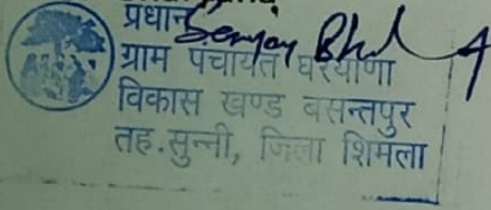 प्रधान
ग्राम पंचायत घरयाणा
विकास खण्ड बसन्तपुर
तह.सुन्नी, जिला शिमला